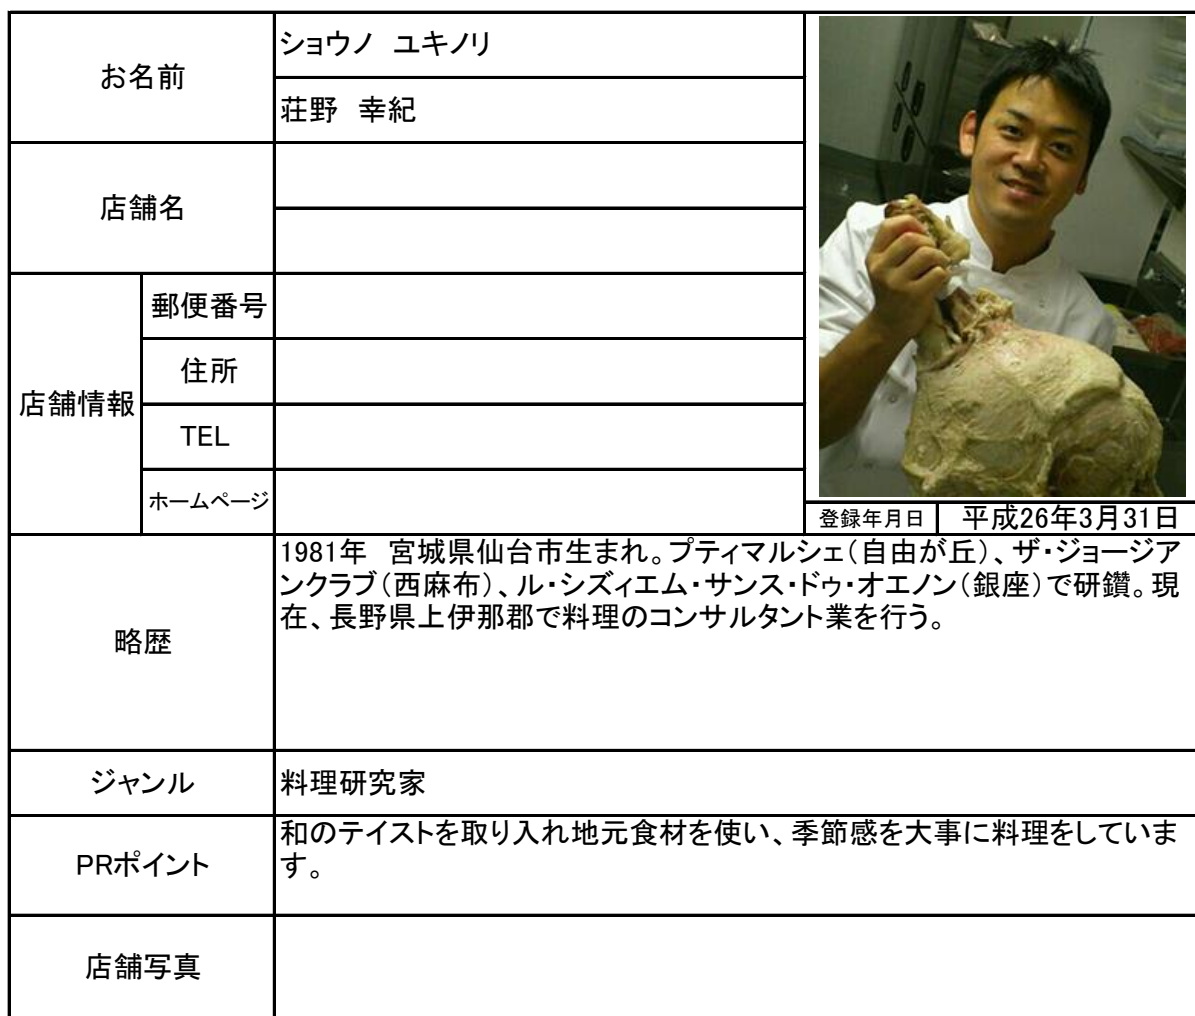 お名前
ショウノ　ユキノリ
荘野　幸紀
店舗名
店舗情報
郵便番号
住所
TEL
ホームページ
登録年月日
平成26年3月31日
略歴
1981年　宮城県仙台市生まれ。プティマルシェ（自由が丘）、ザ・ジョージア
ンクラブ（西麻布）、ル・シズィエム・サンス・ドゥ・オエノン（銀座）で研鑽。現
在、長野県上伊那郡で料理のコンサルタント業を行う。
ジャンル
料理研究家
PRポイント
和のテイストを取り入れ地元食材を使い、季節感を大事に料理をしていま
す。
店舗写真